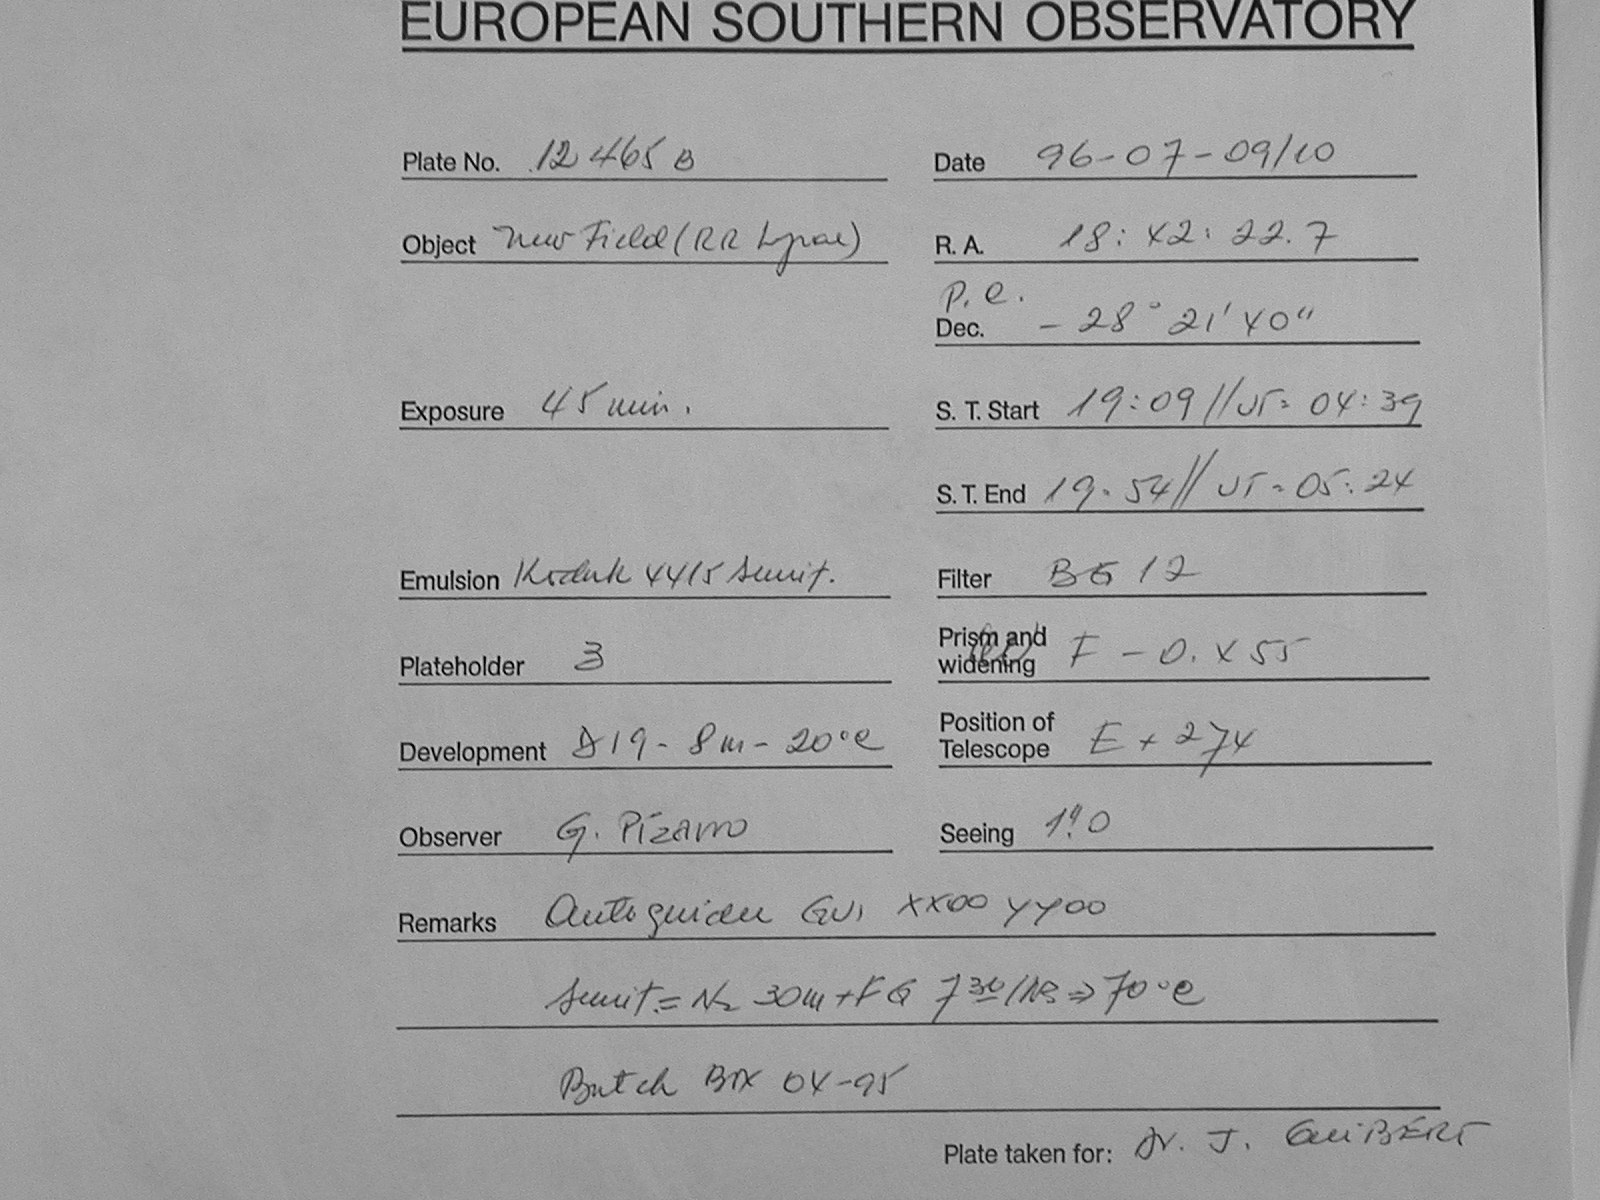 EUROPEAN SOUTHERN OBSERVATORY
Plate No. 12465 B
Date 96-07-09/10
Object New Field (RR Lyrae)
R. A. 18: 42: 22.7
P. e.
Dec. - 28° 21' 40"
Exposure 45 min.
S. T. Start 19:09 // UT= 04:39
S. T. End 19.54 // UT= 05:24
Emulsion Kodak 4415 Sensit.
Filter BG 12
Plateholder 3
Prism and widening F - 0.455
Development D19 - 8m - 20°c
Position of Telescope E + 274
Observer G. Pizarro
Seeing 1".0
Remarks Autoguider XX00 YY00
Sensit.= N2 30m + FG 7 30 /HS ⇒ 70°c
Batch 04-95
Plate taken for: Dr. J. GUIBERT